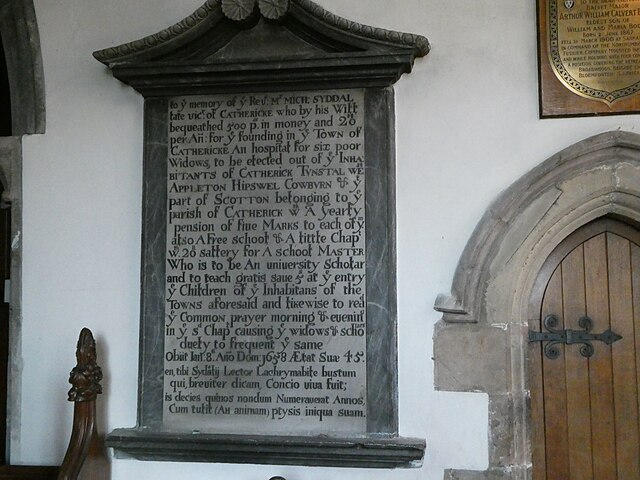 to yͤ memory of yͤ Revᵈ: Mʳ MICH: SYDDAL
late vicʳ. of CATHERICKE who by his Will
bequeathed 500 p. in money and 20
per An: for yͤ founding in yͤ TOWN of
CATHERICKE An hospital for six poor
Widows, to be elected out of yͤ INHA
BITANTS of CATHERICK TVNSTAL WE
APPLETON HIPSWEL COWBVRN & yͤ
part of SCOTTON belonging to yͤ
parish of CATHERICK wᵗʰ A yearly
pension of fiue MARKS to each of yᵐ
also A Free school & A little Chap
w. 20 sallery for A school MASTER
Who is to be An uniuersity Scholar
and to teach gratis saue at yͤ entry
yͤ Children of yͤ Inhabitans of the
TOWNS aforesaid and likewise to rea
yͤ COMMON prayer morning & evenin
in yͤ sᵈ Chapˡ causing yͤ widows & scho
duely to frequent yͤ same
Obijt Ianʳ. 8°. Año Dom: 1658 Ætat Suæ 45
en, tibi Lector Lachrymabile bustum
qui, breuiter dicam, Concio uiua fuit;
is decies quinos nondum Numeraverat Annos,
Cum tulit (Ah animam) ptysis iniqua suam.
ARTHUR WILLIAM CALVERT
ELDEST SON OF
WILLIAM AND MARIA